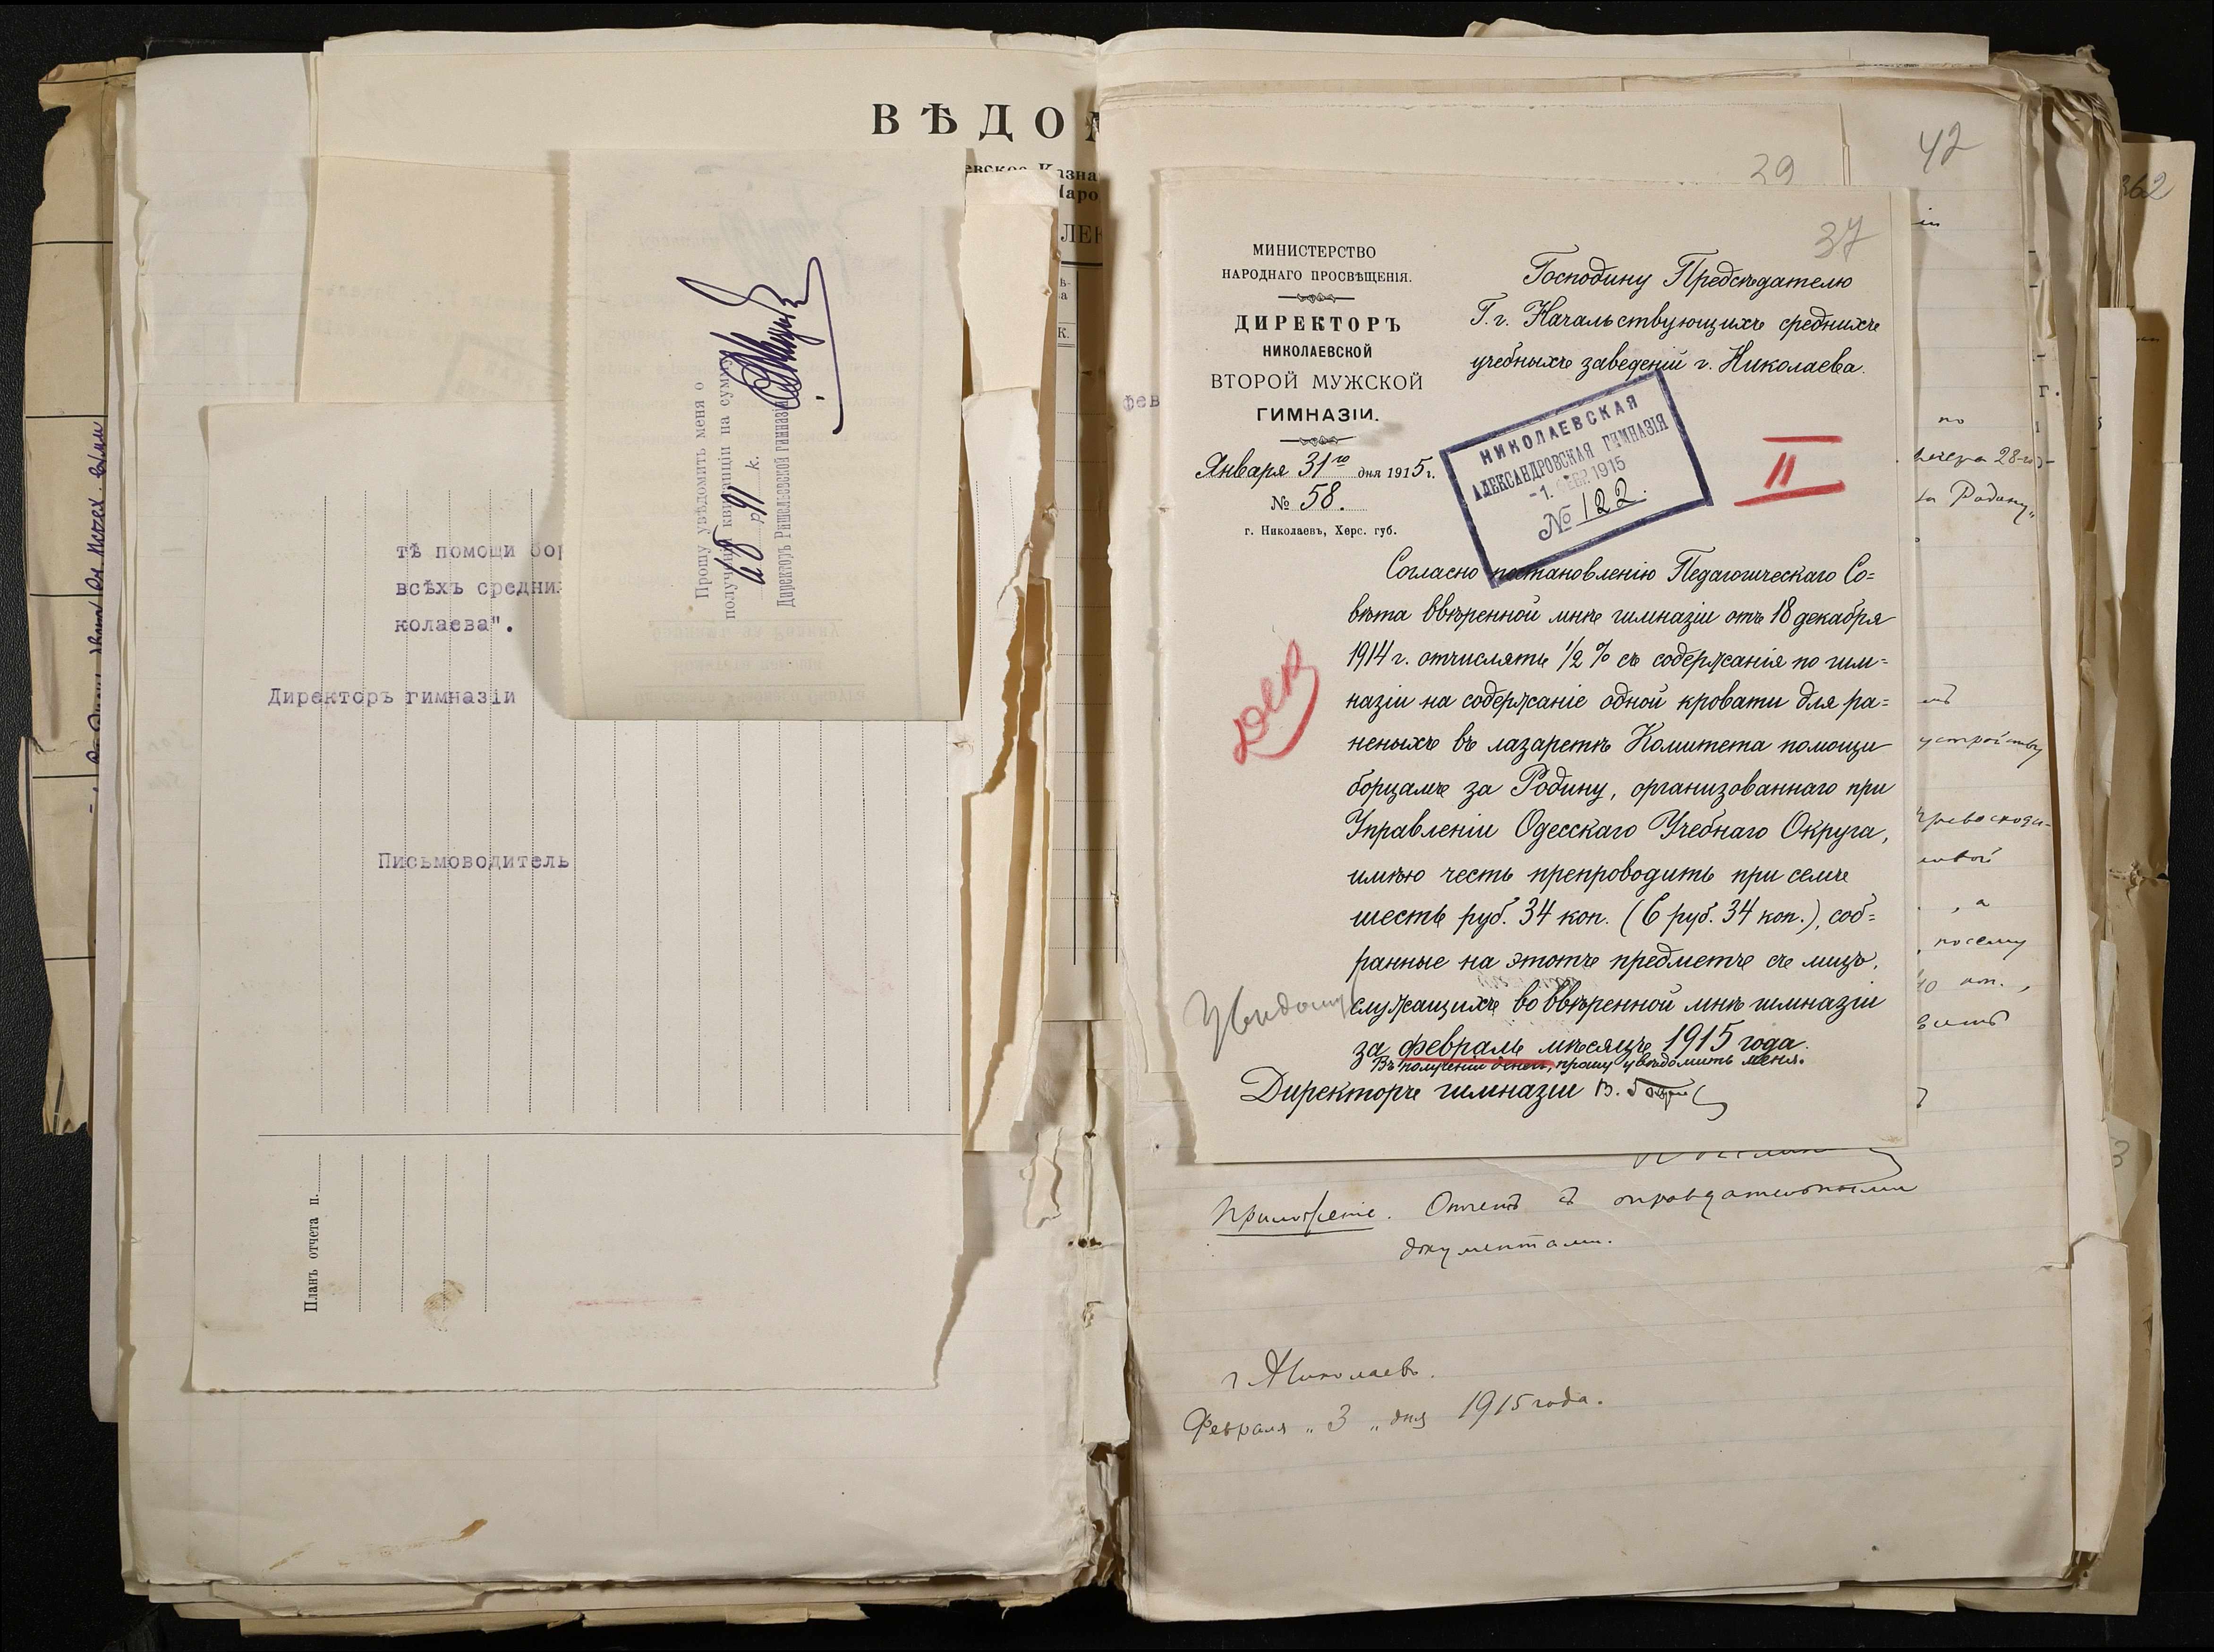 ВѢДО
ЛЕН
тѣ помощи бор
всѣхъ средни
колаева".
Директоръ гимназіи
Письмоводитель
Планъ отчета п.
Прошу увѣдомить меня о
полученіи квитанціи на сумму
68 р. 91 к.
Директоръ Ришельевской гимназіи
42
39
362
37
МИНИСТЕРСТВО
НАРОДНАГО ПРОСВѢЩЕНІЯ.
ДИРЕКТОРЪ
НИКОЛАЕВСКОЙ
ВТОРОЙ МУЖСКОЙ
ГИМНАЗІИ.
Января 31го дня 1915 г.
№ 58.
г. Николаевъ, Херс. губ.
Господину Предсѣдателю
Г.г. Начальствующихъ среднихъ
учебныхъ заведеній г. Николаева.
НИКОЛАЕВСКАЯ
АЛЕКСАНДРОВСКАЯ ГИМНАЗІЯ
-1. ФЕВР. 1915
№ 122.
II
Согласно постановленію Педагогическаго Со=
вѣта ввѣренной мнѣ гимназіи отъ 18 декабря
1914 г. отчислять 1/2 % съ содержанія по гим=
назіи на содержаніе одной кровати для ра=
неныхъ въ лазаретѣ Комитета помощи
борцамъ за Родину, организованнаго при
Управленіи Одесскаго Учебнаго Округа,
имѣю честь препроводить при семъ
шесть руб. 34 коп. (6 руб. 34 коп.), соб=
ранные на этотъ предметъ съ лицъ,
служащихъ во ввѣренной мнѣ гимназіи
за февраль мѣсяцъ 1915 года.
Въ полученіи денегъ, прошу увѣдомить меня.
Директоръ гимназіи В.
Увѣдом
фев
по
28-го
за Родину"
устройству
, а
посему
40 коп.,
Приложеніе. Отчетъ съ оправдательными
документами.
г. Николаевъ.
Февраля "3" дня 1915 года.